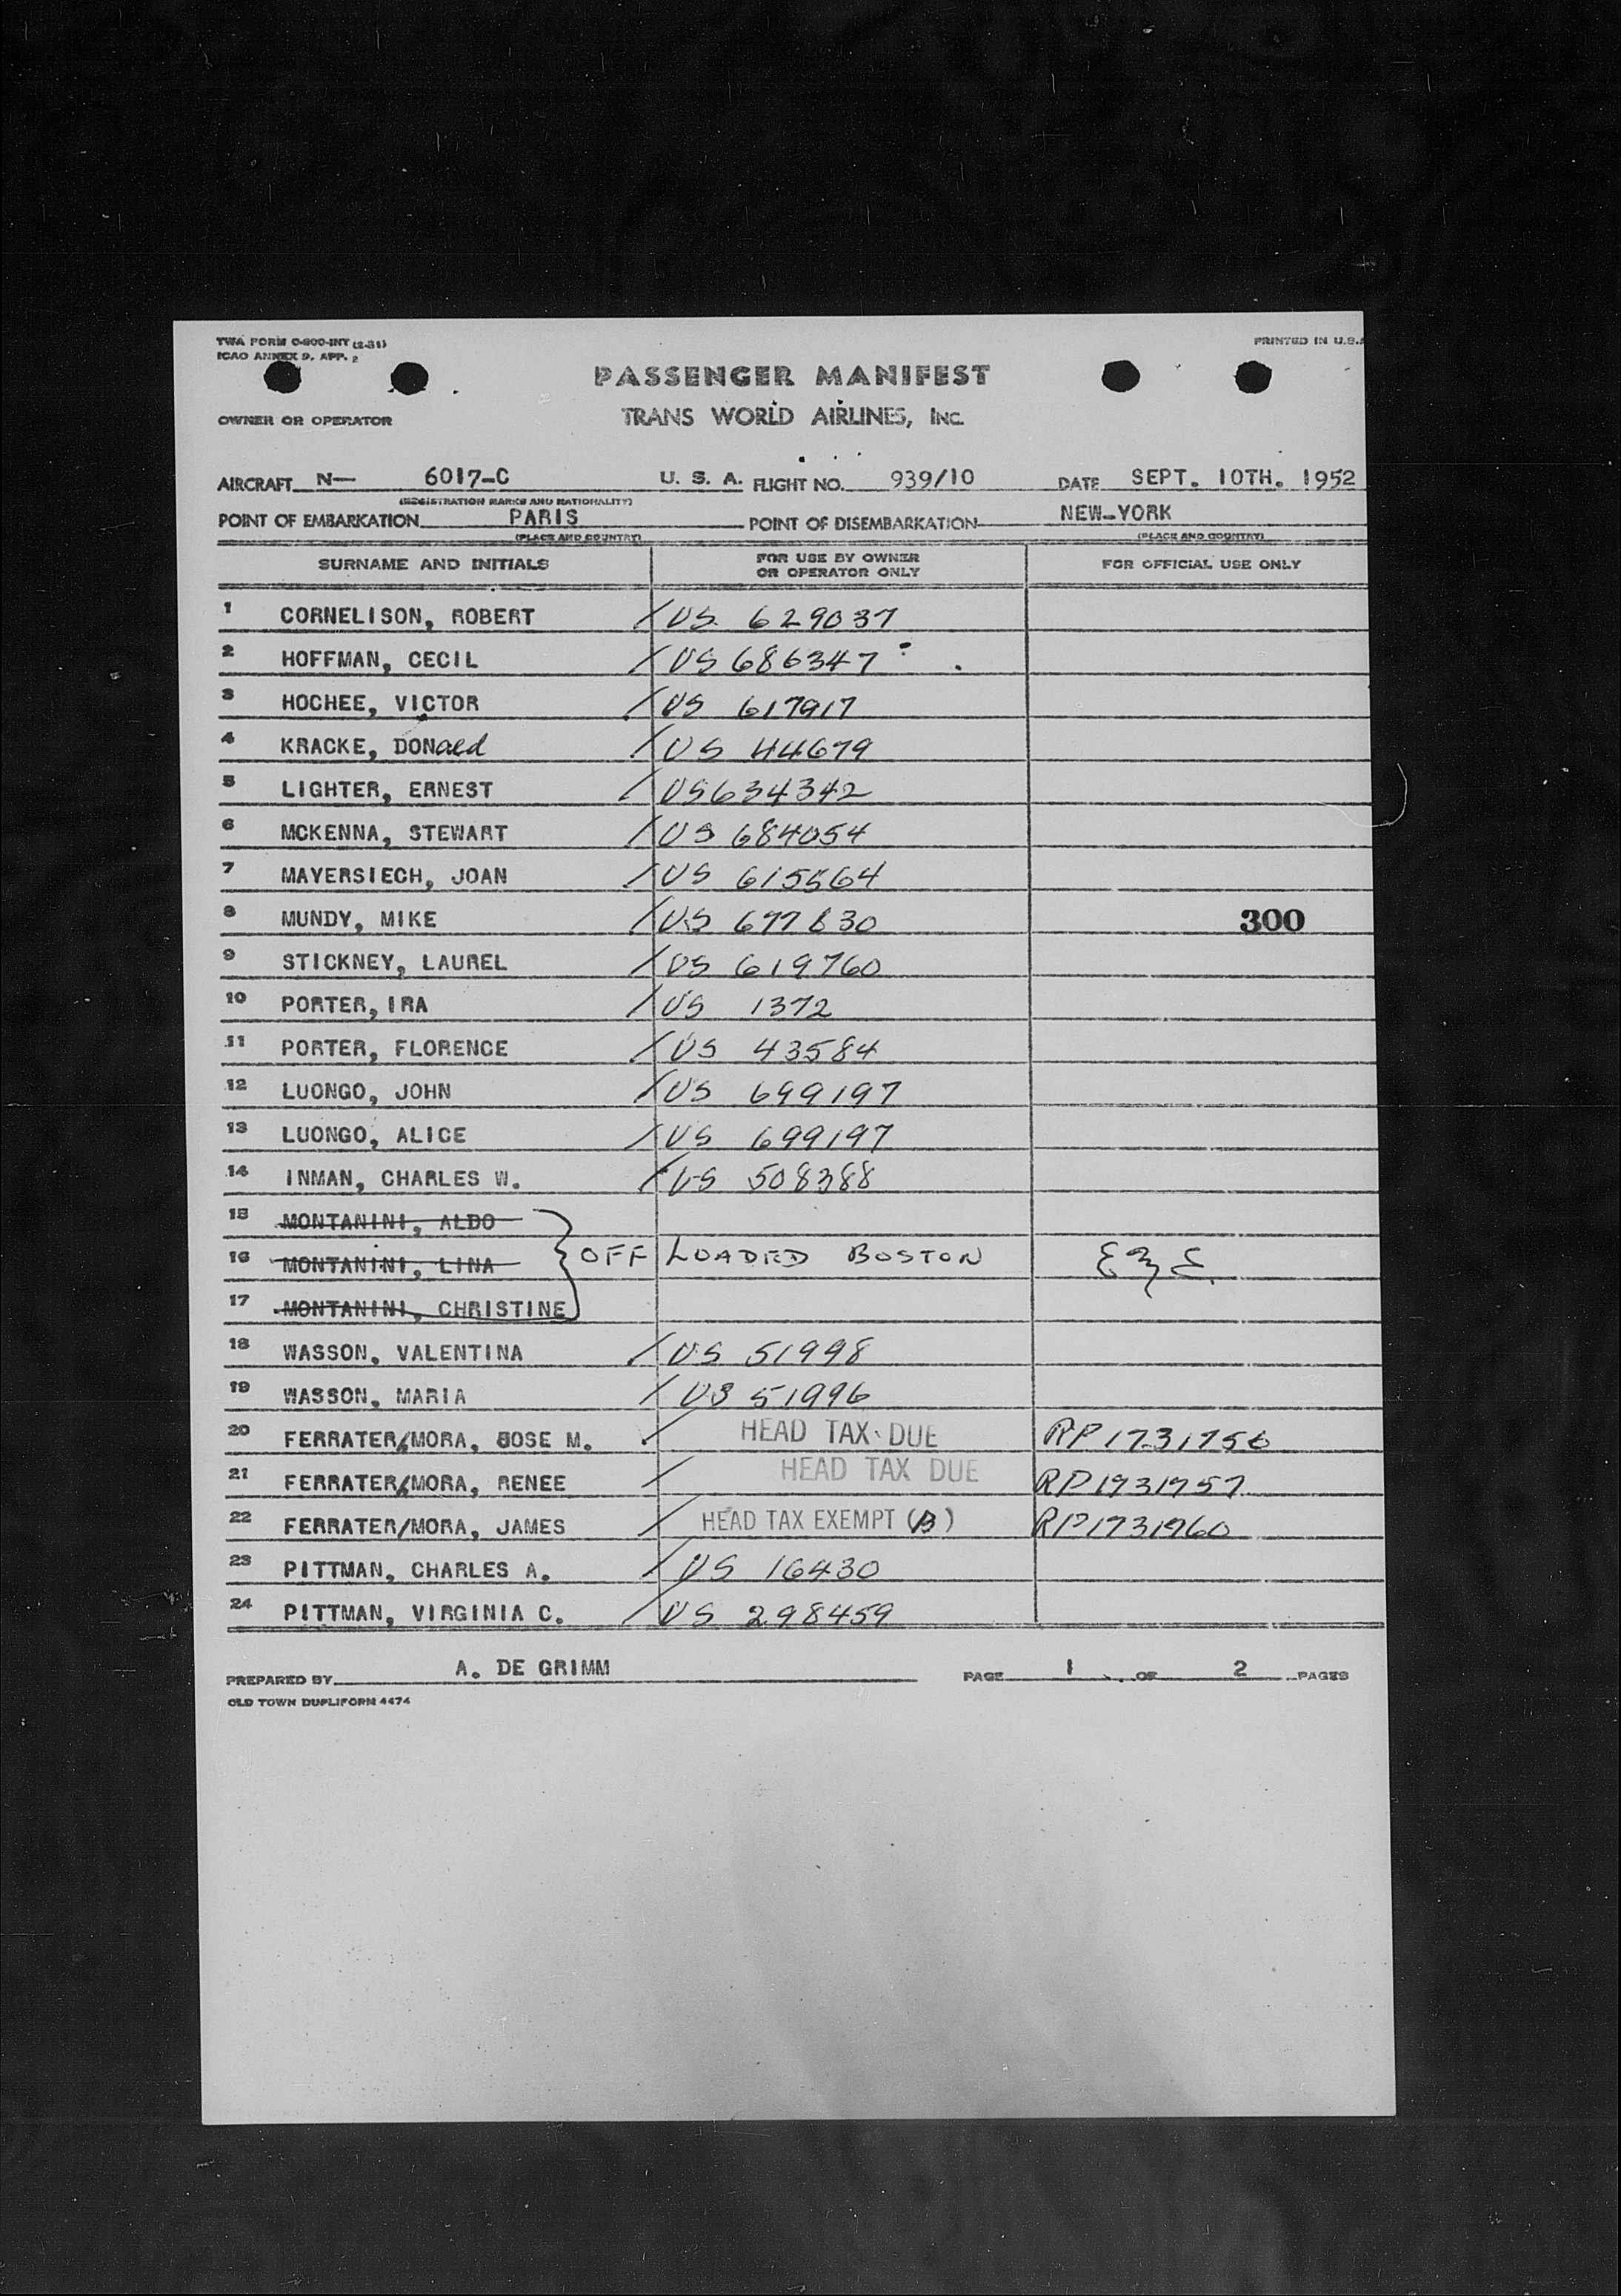 TWA FORM O-800-INT (2-51)
ICAO ANNEX 9, APP. 2
PRINTED IN U.S.A
PASSENGER MANIFEST
OWNER OR OPERATOR TRANS WORLD AIRLINES, INC.
AIRCRAFT N— 6017-C U. S. A. FLIGHT NO. 939/10 DATE SEPT. 10TH. 1952
(REGISTRATION MARKS AND NATIONALITY)
POINT OF EMBARKATION PARIS POINT OF DISEMBARKATION NEW-YORK
(PLACE AND COUNTRY) (PLACE AND COUNTRY)
SURNAME AND INITIALS FOR USE BY OWNER OR OPERATOR ONLY FOR OFFICIAL USE ONLY
1 CORNELISON, ROBERT / US. 629037
2 HOFFMAN, CECIL / US 686347
3 HOCHEE, VICTOR / US 617917
4 KRACKE, DONald / US 44679
5 LIGHTER, ERNEST / US 634342
6 MCKENNA, STEWART / US 684054
7 MAYERSIECH, JOAN / US 615564
8 MUNDY, MIKE / US 677830 300
9 STICKNEY, LAUREL / US 619760
10 PORTER, IRA / US 1372
11 PORTER, FLORENCE / US 43584
12 LUONGO, JOHN / US 699197
13 LUONGO, ALICE / US 699197
14 INMAN, CHARLES W. / US 508388
15 MONTANINI, ALDO
16 MONTANINI, LINA OFF LOADED BOSTON
17 MONTANINI, CHRISTINE
18 WASSON, VALENTINA / US 51998
19 WASSON, MARIA / US 51996
20 FERRATER/MORA, JOSE M. / HEAD TAX DUE RP1731756
21 FERRATER/MORA, RENEE / HEAD TAX DUE RP1731757
22 FERRATER/MORA, JAMES / HEAD TAX EXEMPT (B) RP1731760
23 PITTMAN, CHARLES A. / US 16430
24 PITTMAN, VIRGINIA C. / US 298459
PREPARED BY A. DE GRIMM PAGE 1 OF 2 PAGES
OLD TOWN DUPLIFORM 4474